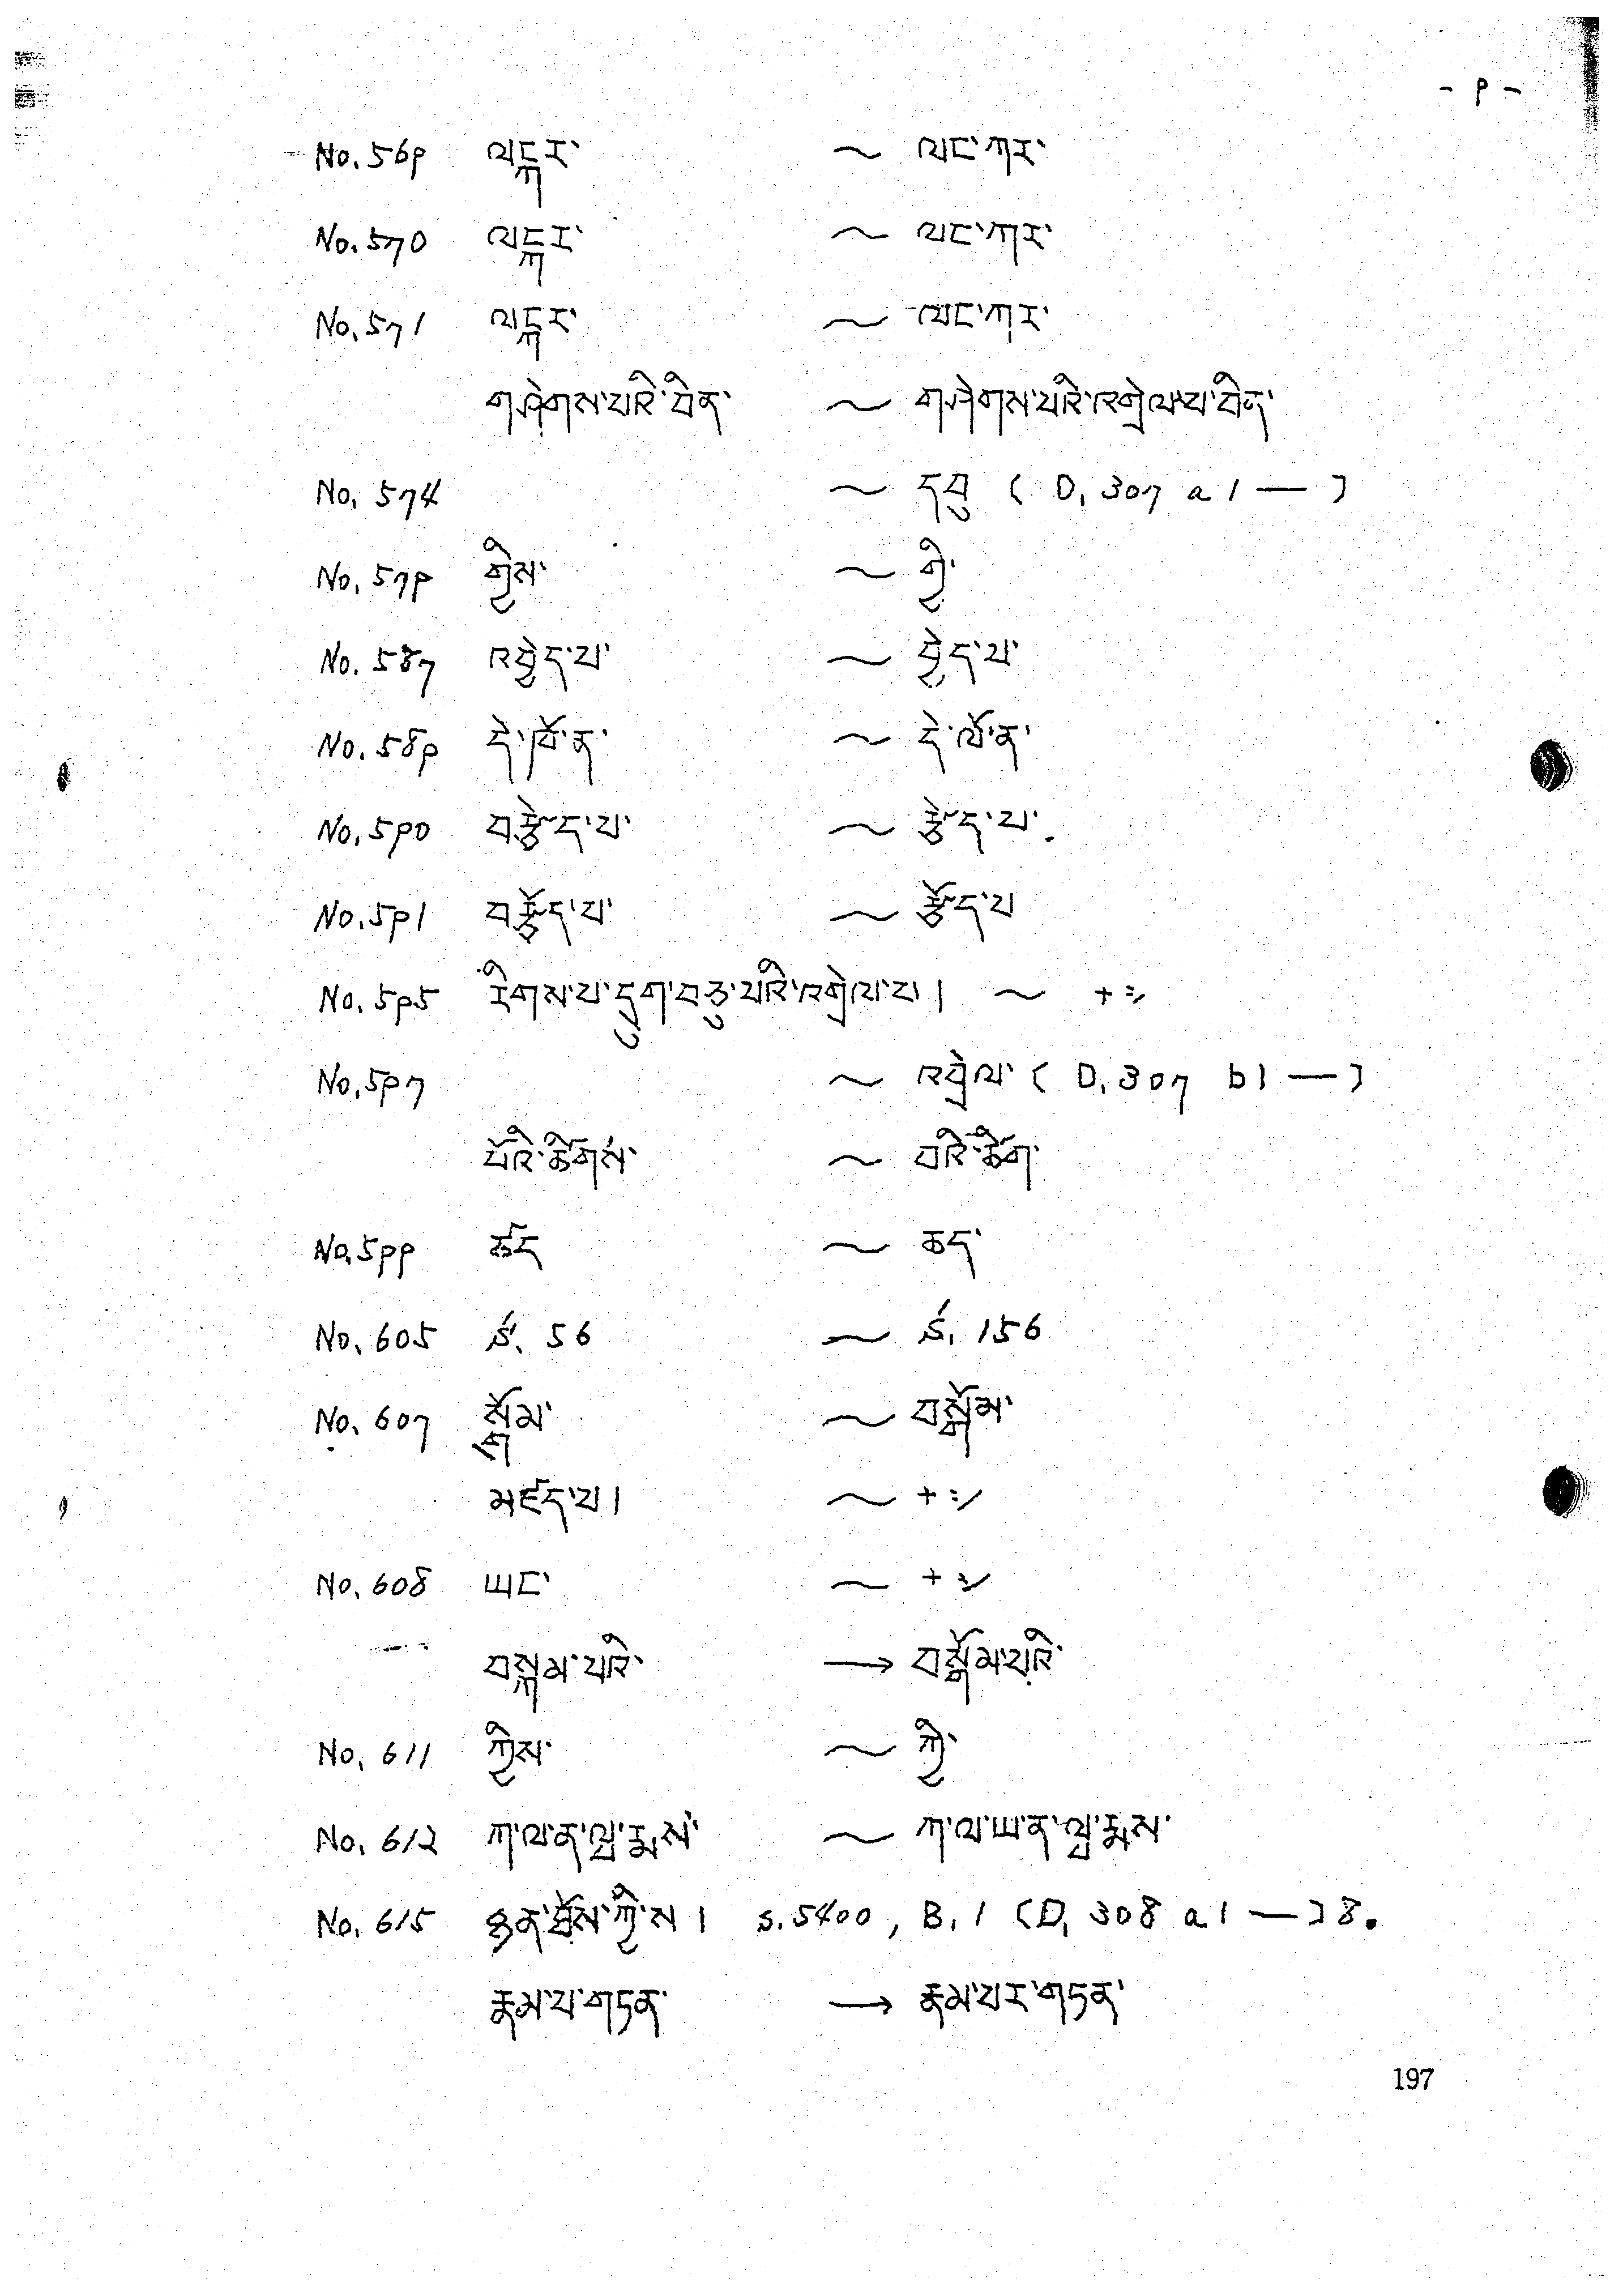 - 9 -
No. 569 ལངྐར་ ~ ལང་ཀར་
No. 570 ལངྐར་ ~ ལང་ཀར་
No. 571 ལངྐར་ ~ ལང་ཀར་
གཤེགས་པའི་བིན་ ~ གཤེགས་པའི་འགྲེལ་པ་བིན་
No. 574 ~ དབུ ( D, 307 a 1 — )
No. 579 གྱིས་ ~ གྱི་
No. 587 འབྱེད་པ་ ~ བྱེད་པ་
No. 589 དེ་ཁོ་ན་ ~ དེ་ལོ་ན་
No. 590 བརྩེད་པ་ ~ རྩེད་པ་
No. 591 བརྩོད་པ་ ~ རྩོད་པ
No. 595 རིགས་པ་དྲུག་བཅུ་པའི་འགྲེལ་པ། ~ + ミ
No. 597 ~ འབྲེལ་ ( D, 307 b 1 — )
པོའི་ཚིགས་ ~ བའི་ཚིག་
No. 599 ཚད ~ ཆད་
No. 605 Ś. 56 ~ Ś. 156
No. 607 སྒྲོམ་ ~ བསྒོམ་
མཛད་པ། ~ + ミ
No. 608 ཡང་ ~ + ミ
བསྐམ་པའི་ → བསྒོམ་པའི་
No. 611 ཀྱིས་ ~ ཀྱི་
No. 612 ཀ་ལ་ན་ལྤ་རྨས་ ~ ཀ་ལ་ཡ་ན་ལྤ་རྨས་
No. 615 ཀྱིས། S. 5400, B. 1 (D, 308 a 1 — ) 8.
རྣམ་པ་གཏན་ → རྣམ་པར་གཏན་
197